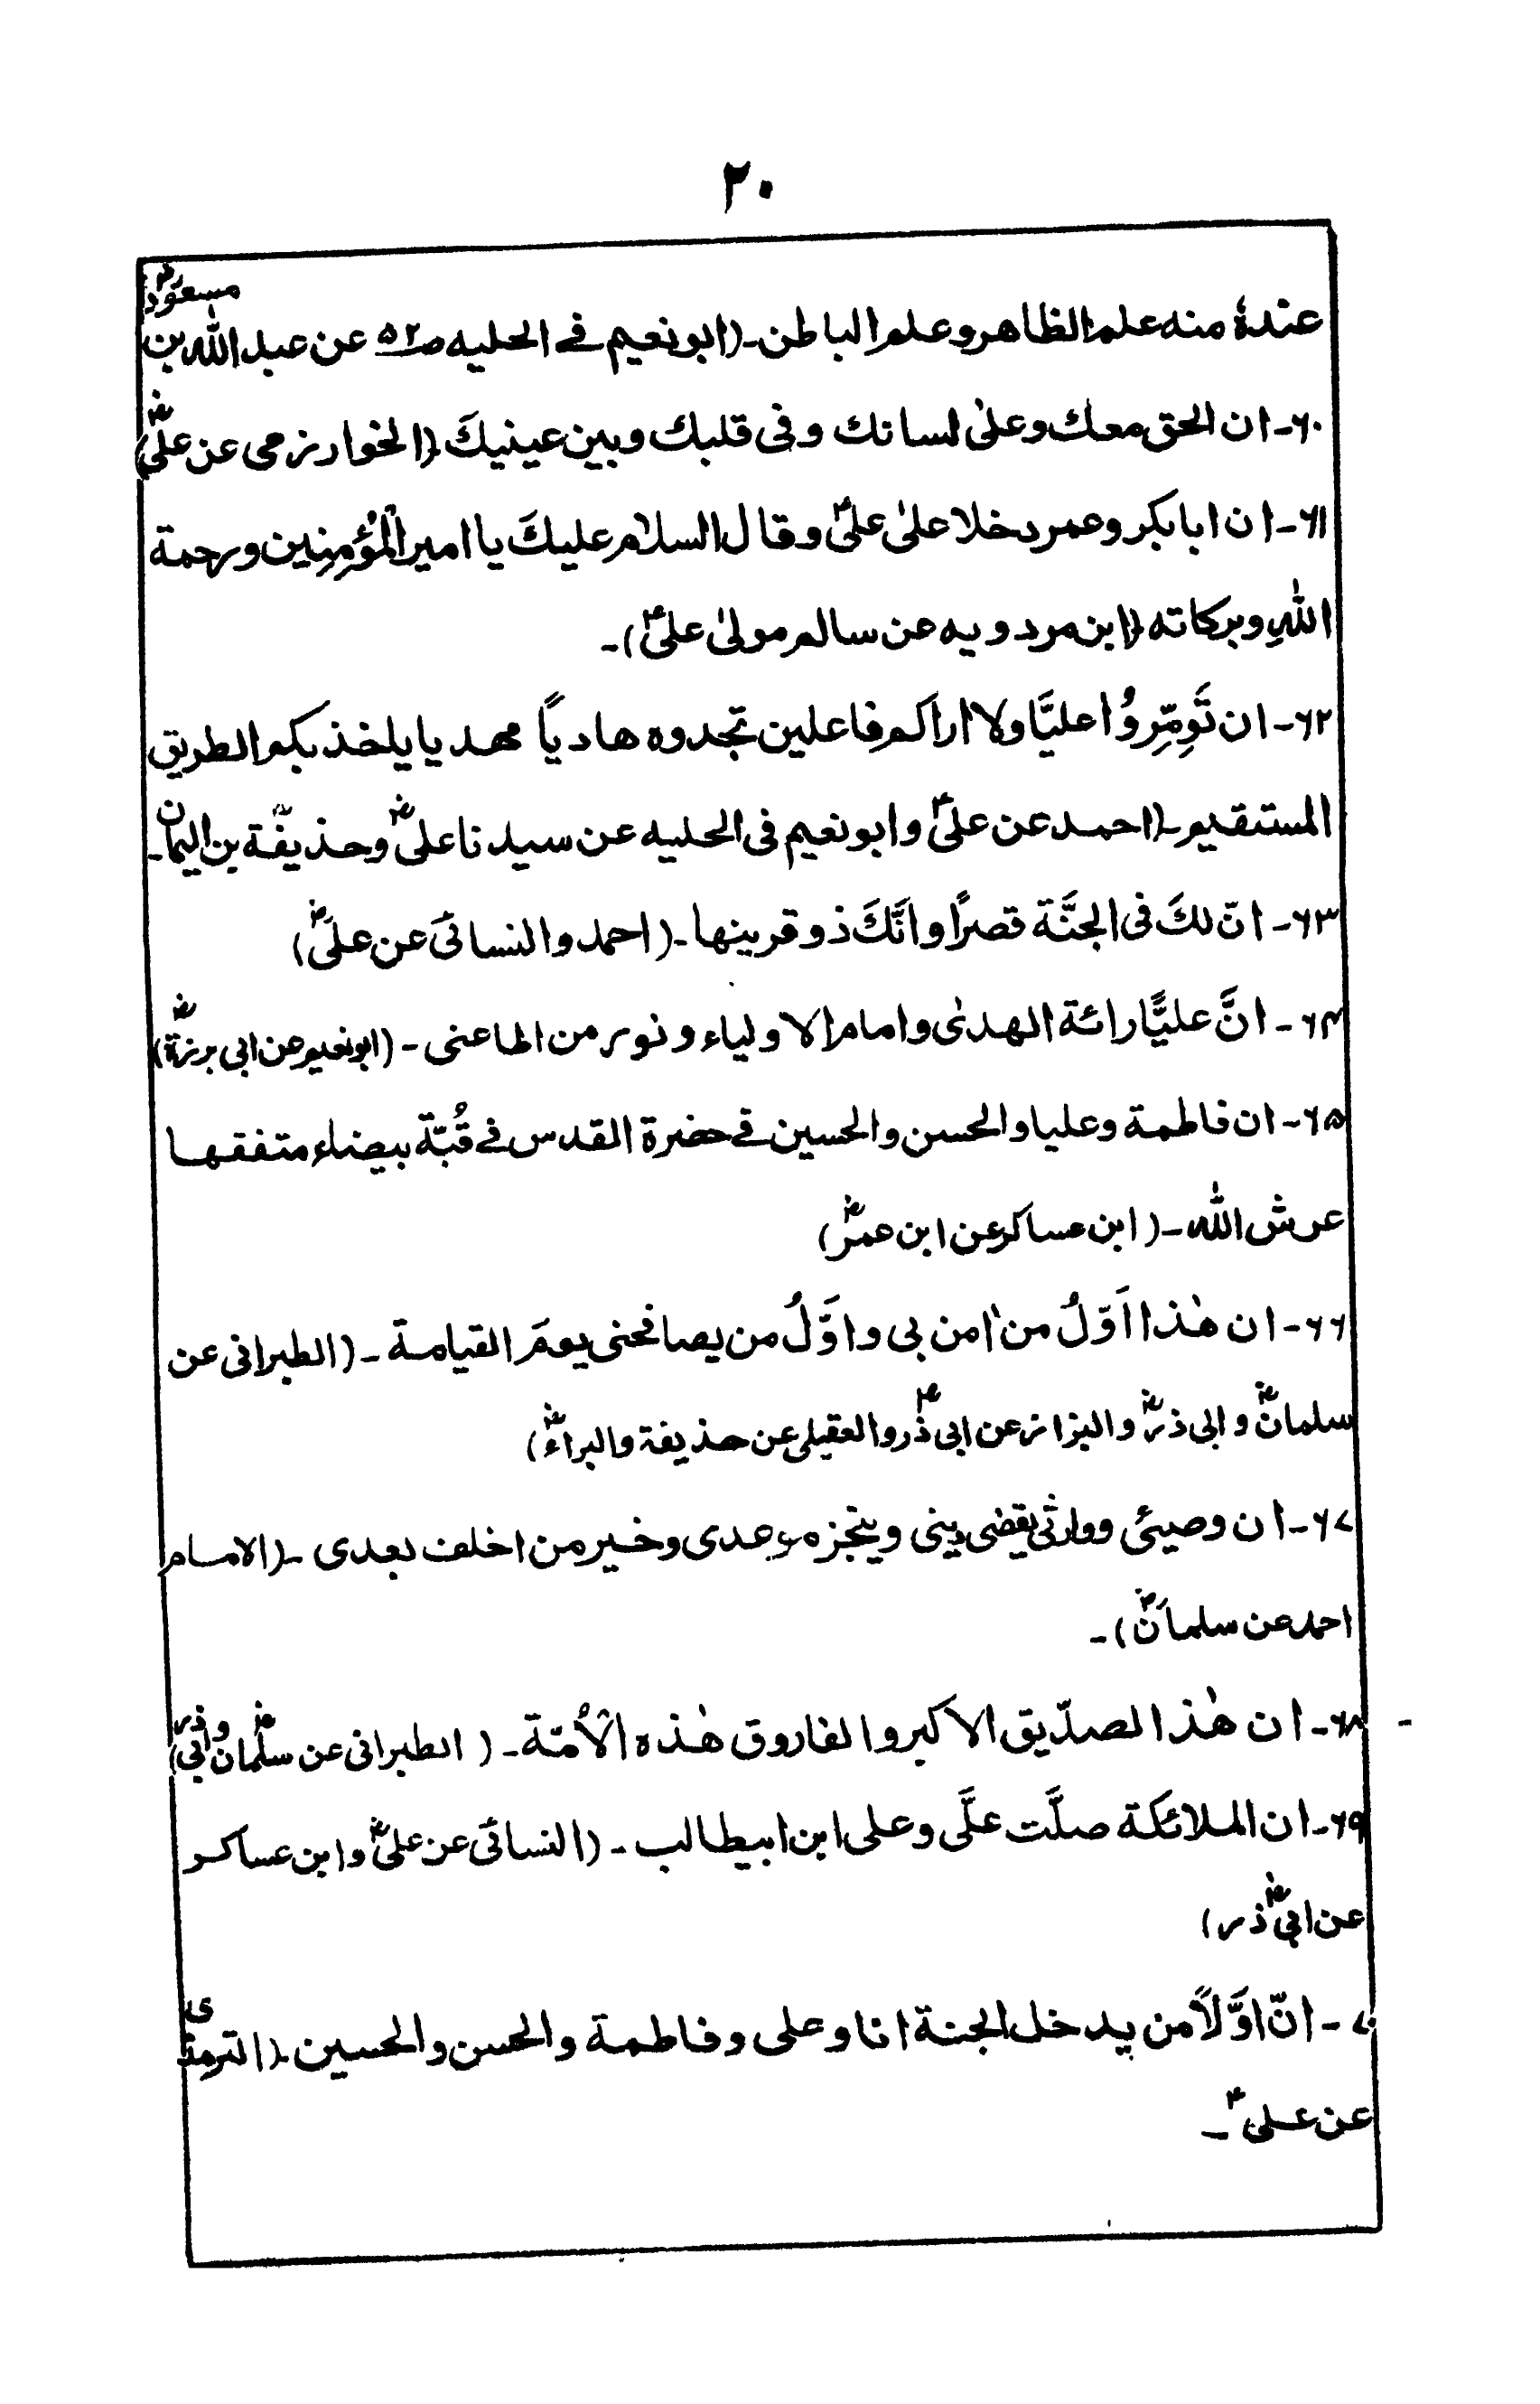 ۲۰
عندهٗ منه علم الظاهر وعلم الباطن۔ (ابو نعیم فے الحلیه صـ۵۲ عن عبد اللّٰه بن مسعودؓ
۶۰۔ ان الحق معك وعلیٰ لسانك وفی قلبك وبین عینیكَ (الخوارزمی عن علیؓ)
۶۱۔ ان ابابكر وعمر دخلا علیٰ علیؑ وقال السلام علیكَ یا امیر الْمُؤمِنِین ورحمة
اللّٰهِ وبركاته (ابن مردویه عن سالم مولیٰ علیؑ)۔
۶۲۔ ان تَومِّرِوُا علیَّا ولا اراكم فاعلین تجدوه هادیًا مهدیا یاخذ بكم الطریق
المستقیم۔ (احمد عن علیؑ وابو نعیم فی الحلیه عن سیدنا علیؓ وحذیفة بن الیمان۔
۶۳۔ انّ لكَ فی الجنَّة قصرًا وانَّكَ ذو قرینها۔ (احمد والنسائی عن علیؓ)
۶۴۔ انَّ علیًّا رائة الهدیٰ وامام الاولیاء ونور من اطاعنی۔ (ابو نعیم عن ابی برزةؓ)
۶۵۔ ان فاطمة وعلیا والحسن والحسین فے حضرة القدس فے قُبّة بیضاء متفقها
عرش اللّٰه۔ (ابن عساكر عن ابن عمرؓ)
۶۶۔ ان هٰذا اَوّلُ من اٰمن بی واوَّلُ من یصافحنی یومَ القیامة۔ (الطبرانی عن
سلمانؓ وابی ذرؓ والبزاز عن ابی ذرؓ والعقیلی عن حذیفة والبراءؓ)
۶۷۔ ان وصیئ ووارثی یقضی دینی وینجز موعدی وخیر من اخلف بعدی۔ (الامام
احمد عن سلمانؓ)۔
۶۸۔ ان هٰذا الصدّیق الاكبر والفاروق هٰذه الْاُمّة۔ (الطبرانی عن سلمانؓ وابی ذر)
۶۹۔ ان الملائكة صلَّت علَّی وعلی ابن ابیطالب۔ (النسائی عن علیؓ وابن عساكر
عن ابیؓ ذر)
۷۰۔ انّ اوَّلاً من یدخل الجنة انا وعلی وفاطمة والحسن والحسین۔ (الترمذی
عن علیؑ۔